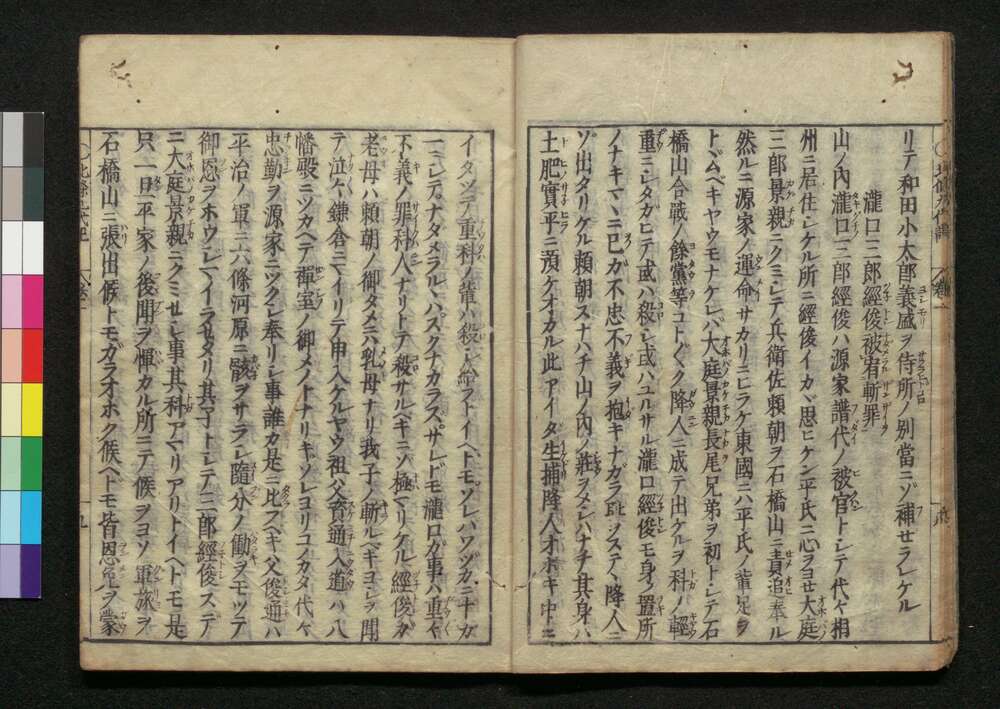 リテ和田小太郎義盛ヲ侍所ノ別當ニゾ補セラレケル
瀧口三郎經俊被宥斬罪
山ノ內瀧口三郎經俊ハ源家譜代ノ被官トシテ代々相
州ニ居住シケル所ニ經俊イカヾ思ヒケン平氏ニ心ヲヨセ大庭
三郎景親ニクミシテ兵衛佐頼朝ヲ石橋山ニ責追奉ル
然ルニ源家ノ運命サカリニヒラケ東國ニ八平氏ノ輩足ヲ
トヾムベキヤウモナケレバ大庭景親長尾兄弟ヲ初トシテ石
橋山合戰ノ餘黨等コト〴〵ク降人ニ成テ出ケルヲ科ノ輕
重ニシタガヒテ或ハ殺シ或ハユルサル瀧口經俊モ身ノ置所
ノナキマヽニ己ガ不忠不義ヲ抱キナガラ恥ヲステヽ降人ニ
ゾ出タリケル頼朝スナハチ山ノ內ノ莊ヲメシハナチ其身ハ
土肥實平ニ預ケオカル此アイタ生捕降人オホキ中ニ
イタツテ重科ノ輩ハ殺シ給フトイヘトモソレハワヅカニ十ガ
一ニシテナダメラルヽハスクナカラズサレドモ瀧口ガ事ハ重々
不義ノ罪科人ナリトテ殺サルベキニハ極マリケル經俊ガ
老母ハ頼朝ノ御タメニハ乳母ナリ我子ノ斬ルベキヨシヲ聞
テ泣々鎌倉ニマイリテ申入ケルヤウ祖父資通入道ハ八
幡殿ニツカヘテ禪室ノ御メノトナリキソレヨリコノカタ代々
忠勤ヲ源家ニツクシ奉リシ事誰カ是ニ比フベキ父俊通ハ
平治ノ軍ニ六條河原ニ骸ヲサラシ隨分ノ働ヲモツテ
御恩ヲホウシマイラセメリ其子トシテ三郎經俊ステ
ニ大庭景親ニクミセシ事其科アマリアリトイヘトモ是
只一旦平家ノ後聞ヲ憚カル所ニテ候ヲヨソ軍旅ヲ
石橋山ニ張出候トモガラオホク候ヘトモ皆恩免ヲ蒙